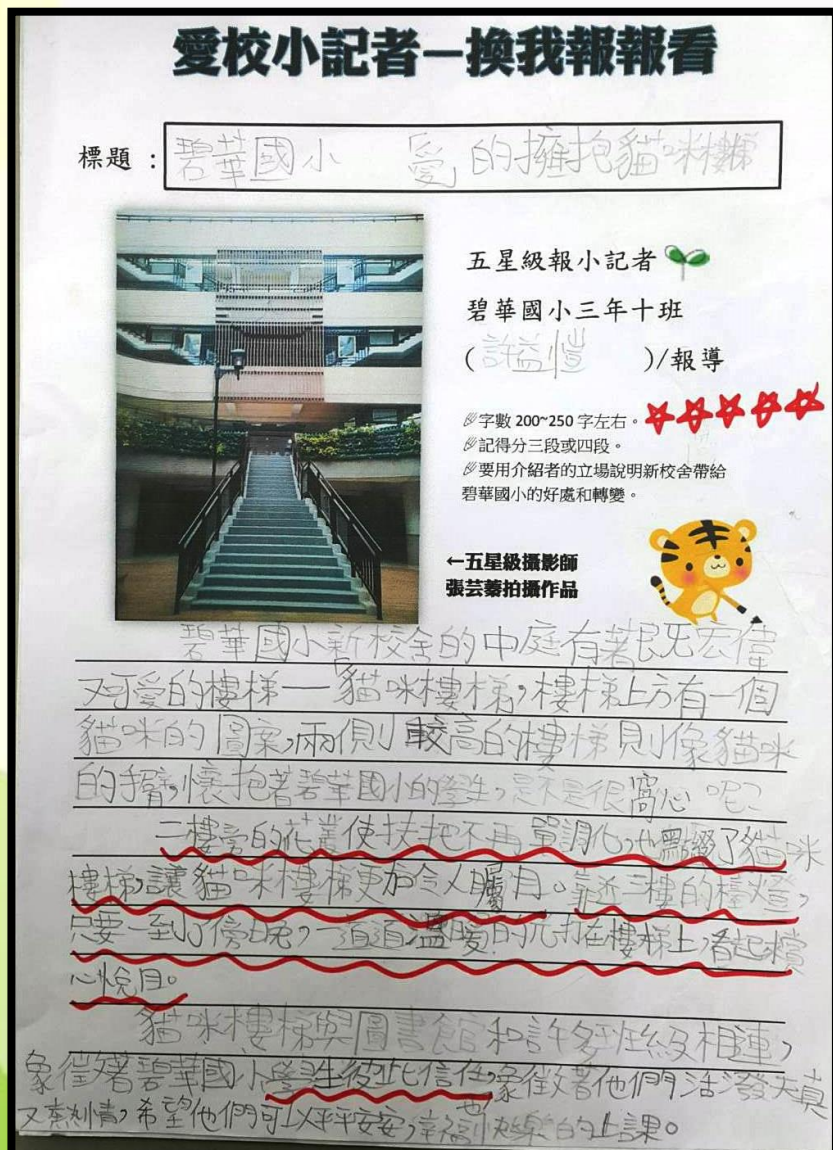 愛校小記者－換我報報看
標題：碧華國小 「愛」的擁抱貓咪樓梯
五星級報小記者
碧華國小三年十班
(許益愷)/報導
字數 200~250 字左右。
記得分三段或四段。
要用介紹者的立場說明新校舍帶給
碧華國小的好處和轉變。
←五星級攝影師
張芸蓁拍攝作品
碧華國小新校舍的中庭有著既宏偉
又可愛的樓梯——「貓咪樓梯,樓梯上方有一個
貓咪的圖案,兩側較高的樓梯則像貓咪
的手臂,懷抱著碧華國小的學生,是不是很窩心呢?
二樓旁的花叢使扶把不再單調化,也點綴了貓咪
樓梯,讓貓咪樓梯更加令人矚目。靠近二樓的檯燈,
只要一到了傍晚,一道道溫暖的光打在樓梯上,看起來賞
心悅目。
貓咪樓梯與圖書館和許多班級相連,
象徵著碧華國小學生彼此信任,象徵著他們活潑天真
又熱情,希望他們可以平平安安,快樂的上課。